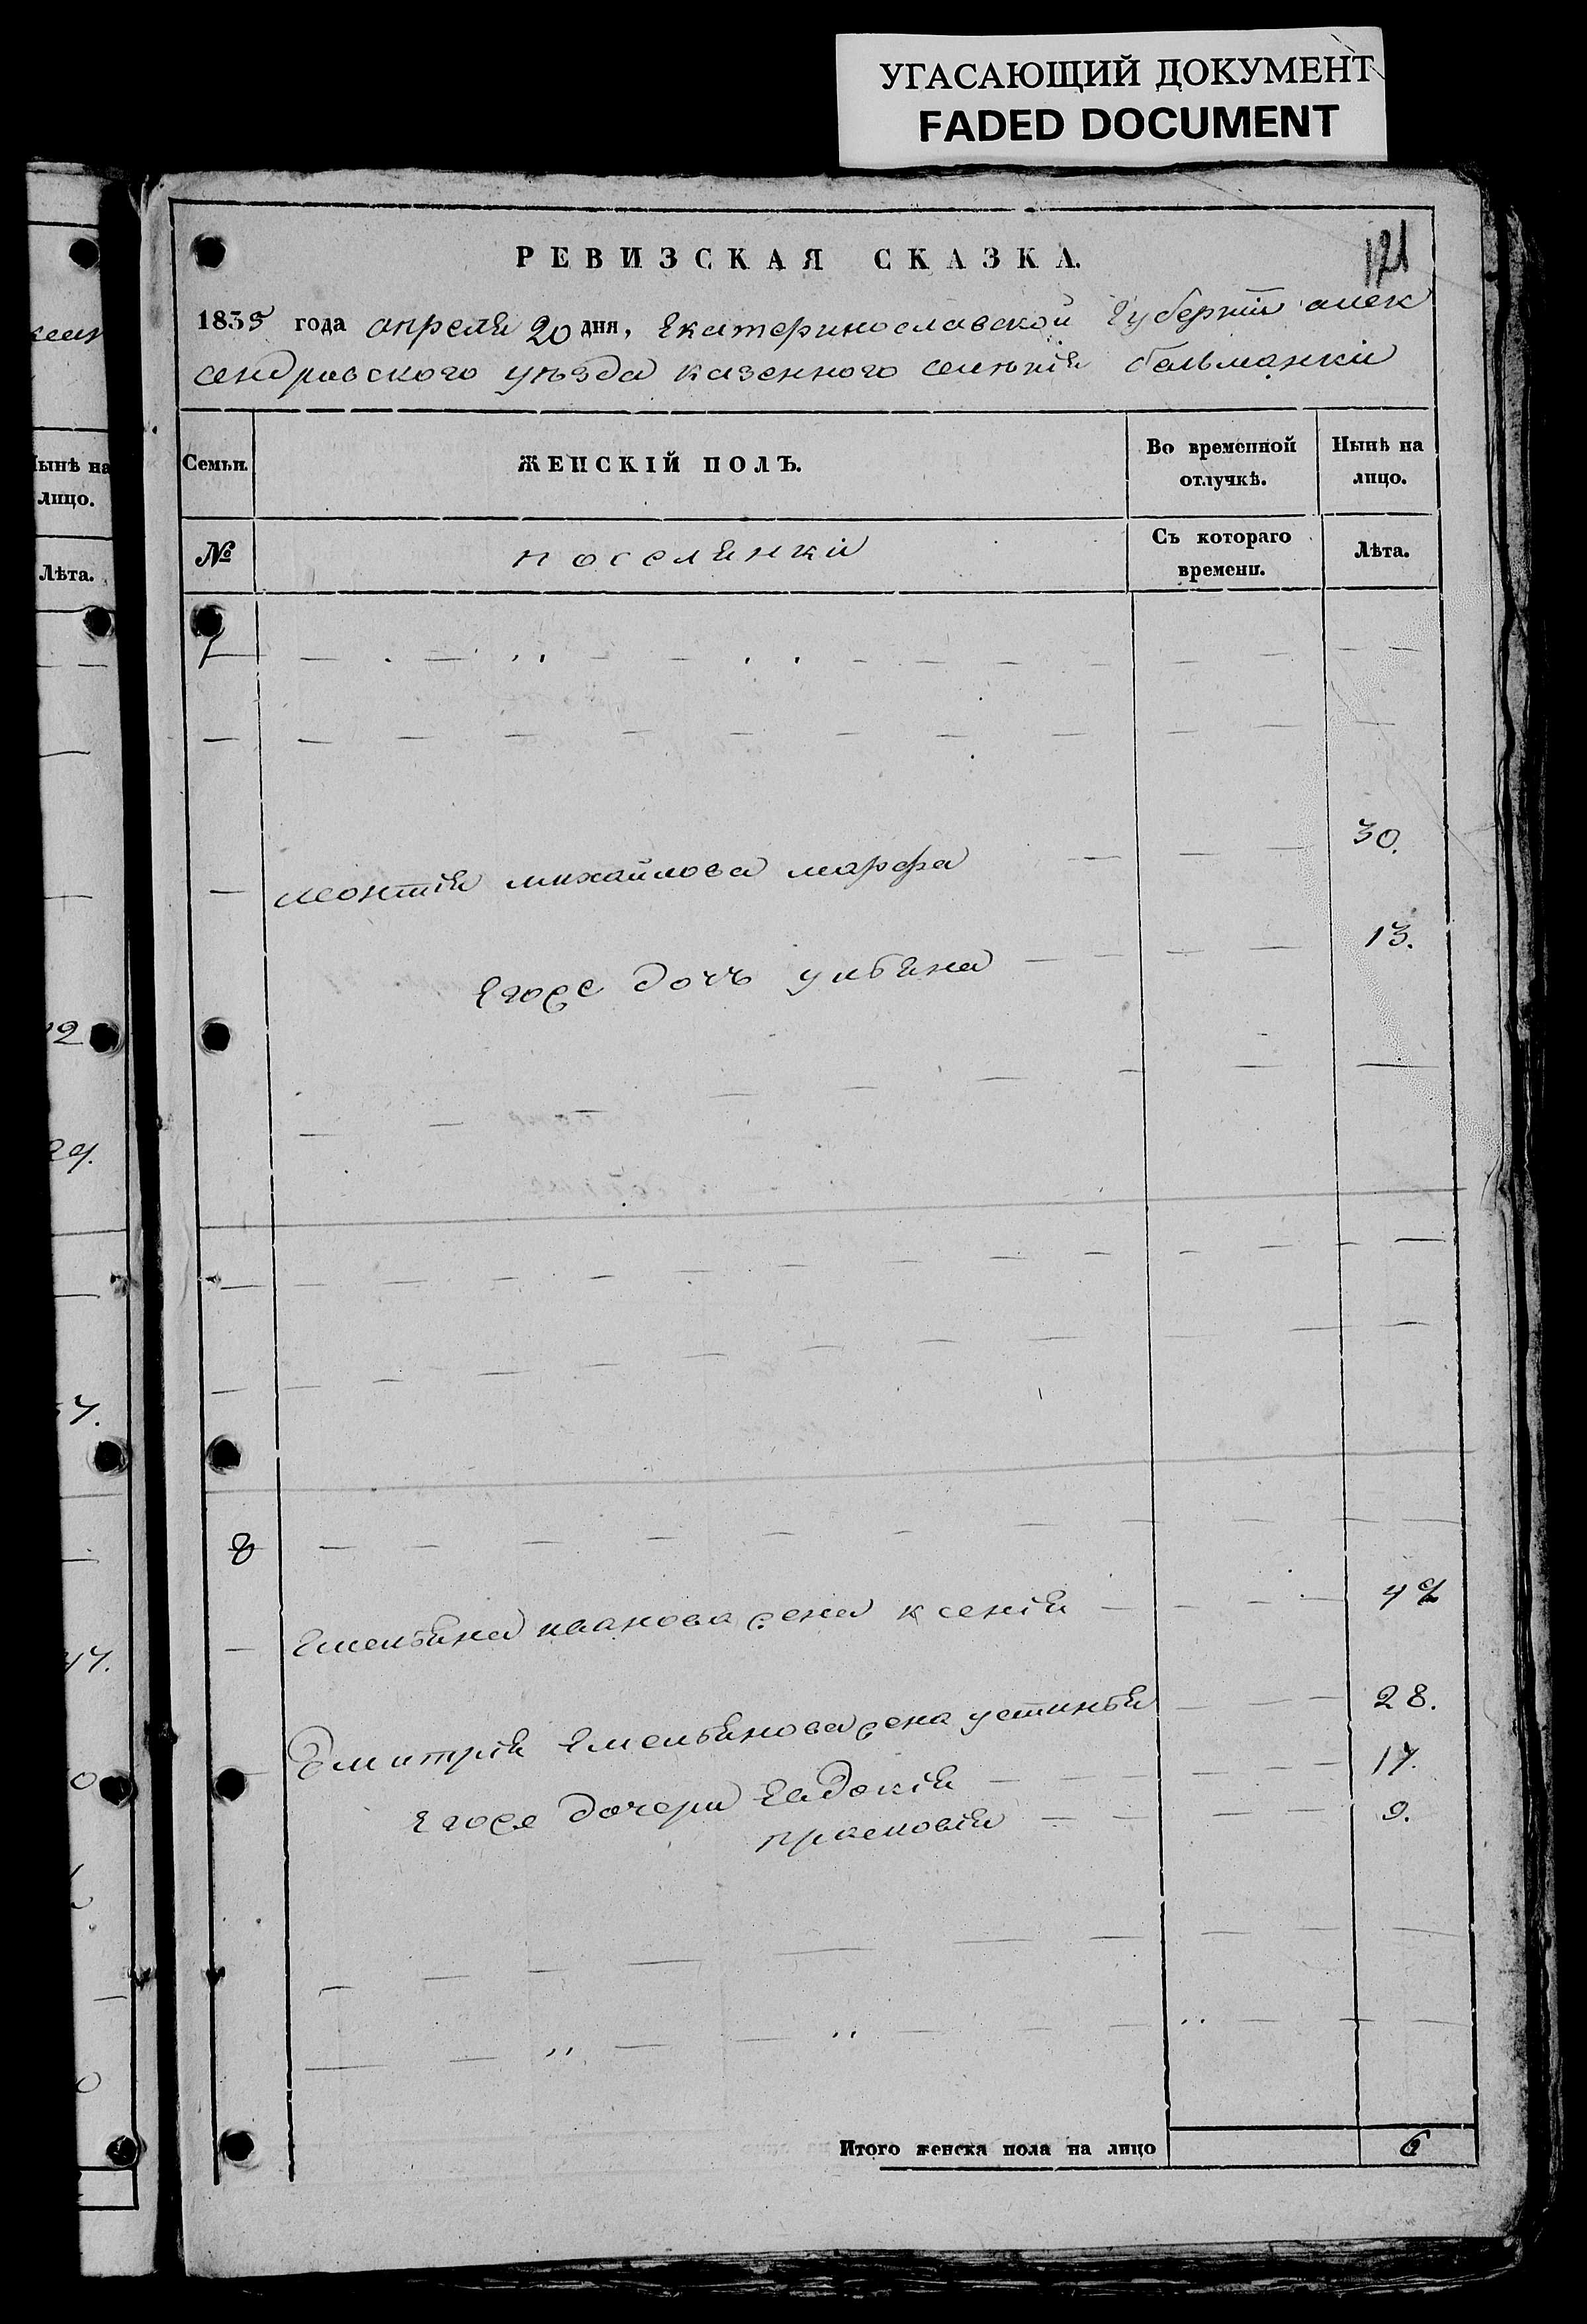 УГАСАЮЩИЙ ДОКУМЕНТ
FADED DOCUMENT
РЕВИЗСКАЯ СКАЗКА.
121
1835 года апреля 20 дня, Екатеринославской Губернiи алек
сендровского уѣзда казенного селѣнiя бельманки
Семьи.
ЖЕНСКIЙ ПОЛЪ.
Во временной отлучкѣ.
Нынѣ на лицо.
№
поселянки
Съ котораго времени.
Лѣта.
7
леонтiя михайлова марфа 30.
Егоже дочь улбяна 13.
8
Емелбяна иванова жена ксенiя 49
Дмитрiя Емелбянова жена устинья 28.
Егоже дочери Евдокiя 17.
прасковiя 9.
Итого женска пола на лицо 6
Нынѣ на
лицо.
Лѣта.